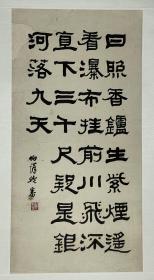 日照香鑪生紫煙遙
看瀑布挂前川飛流
直下三千尺疑是銀
河落九天